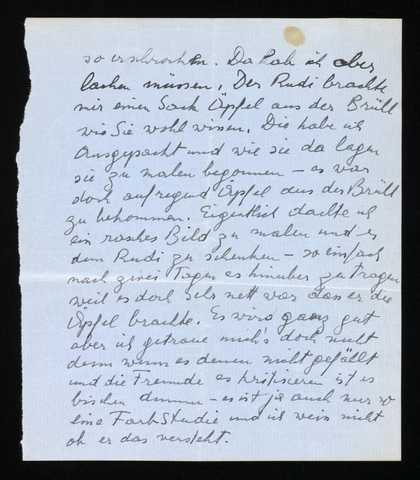 so erschrocken. Da hab ich aber
lachen müssen. Der Rudi brachte
mir einen Sack Äpfel aus der Brüll
wie Sie wohl wissen. Die habe ich
ausgepackt und wie sie da lagen
sie zu malen begonnen – es war
doch aufregend Äpfel aus der Brüll
zu bekommen. Eigentlich dachte ich
ein rasches Bild zu malen und es
dem Rudi zu schenken – so einfach
nach zwei Tagen es hinüber zu tragen
weil es doch sehr nett war dass er die
Äpfel brachte. Es wird ganz gut
aber ich getraue mich's doch nicht
denn wenn es denen nicht gefällt
und die Freunde es kritisieren ist es
bischen dumm – es ist ja auch nur so
eine Farbstudie und ich weiss nicht
ob er das versteht.